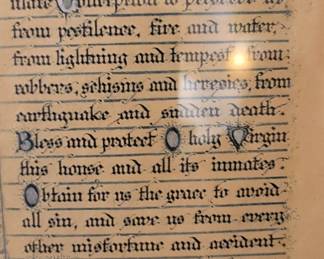 mate Conception to preserve us
from pestilence, fire and water,
from lightning and tempest, from
robbers, schisms and heresies, from
earthquake and sudden death.
Bless and protect O holy Virgin
this house and all its inmates.
Obtain for us the grace to avoid
all sin, and save us from every
other misfortune and accident.